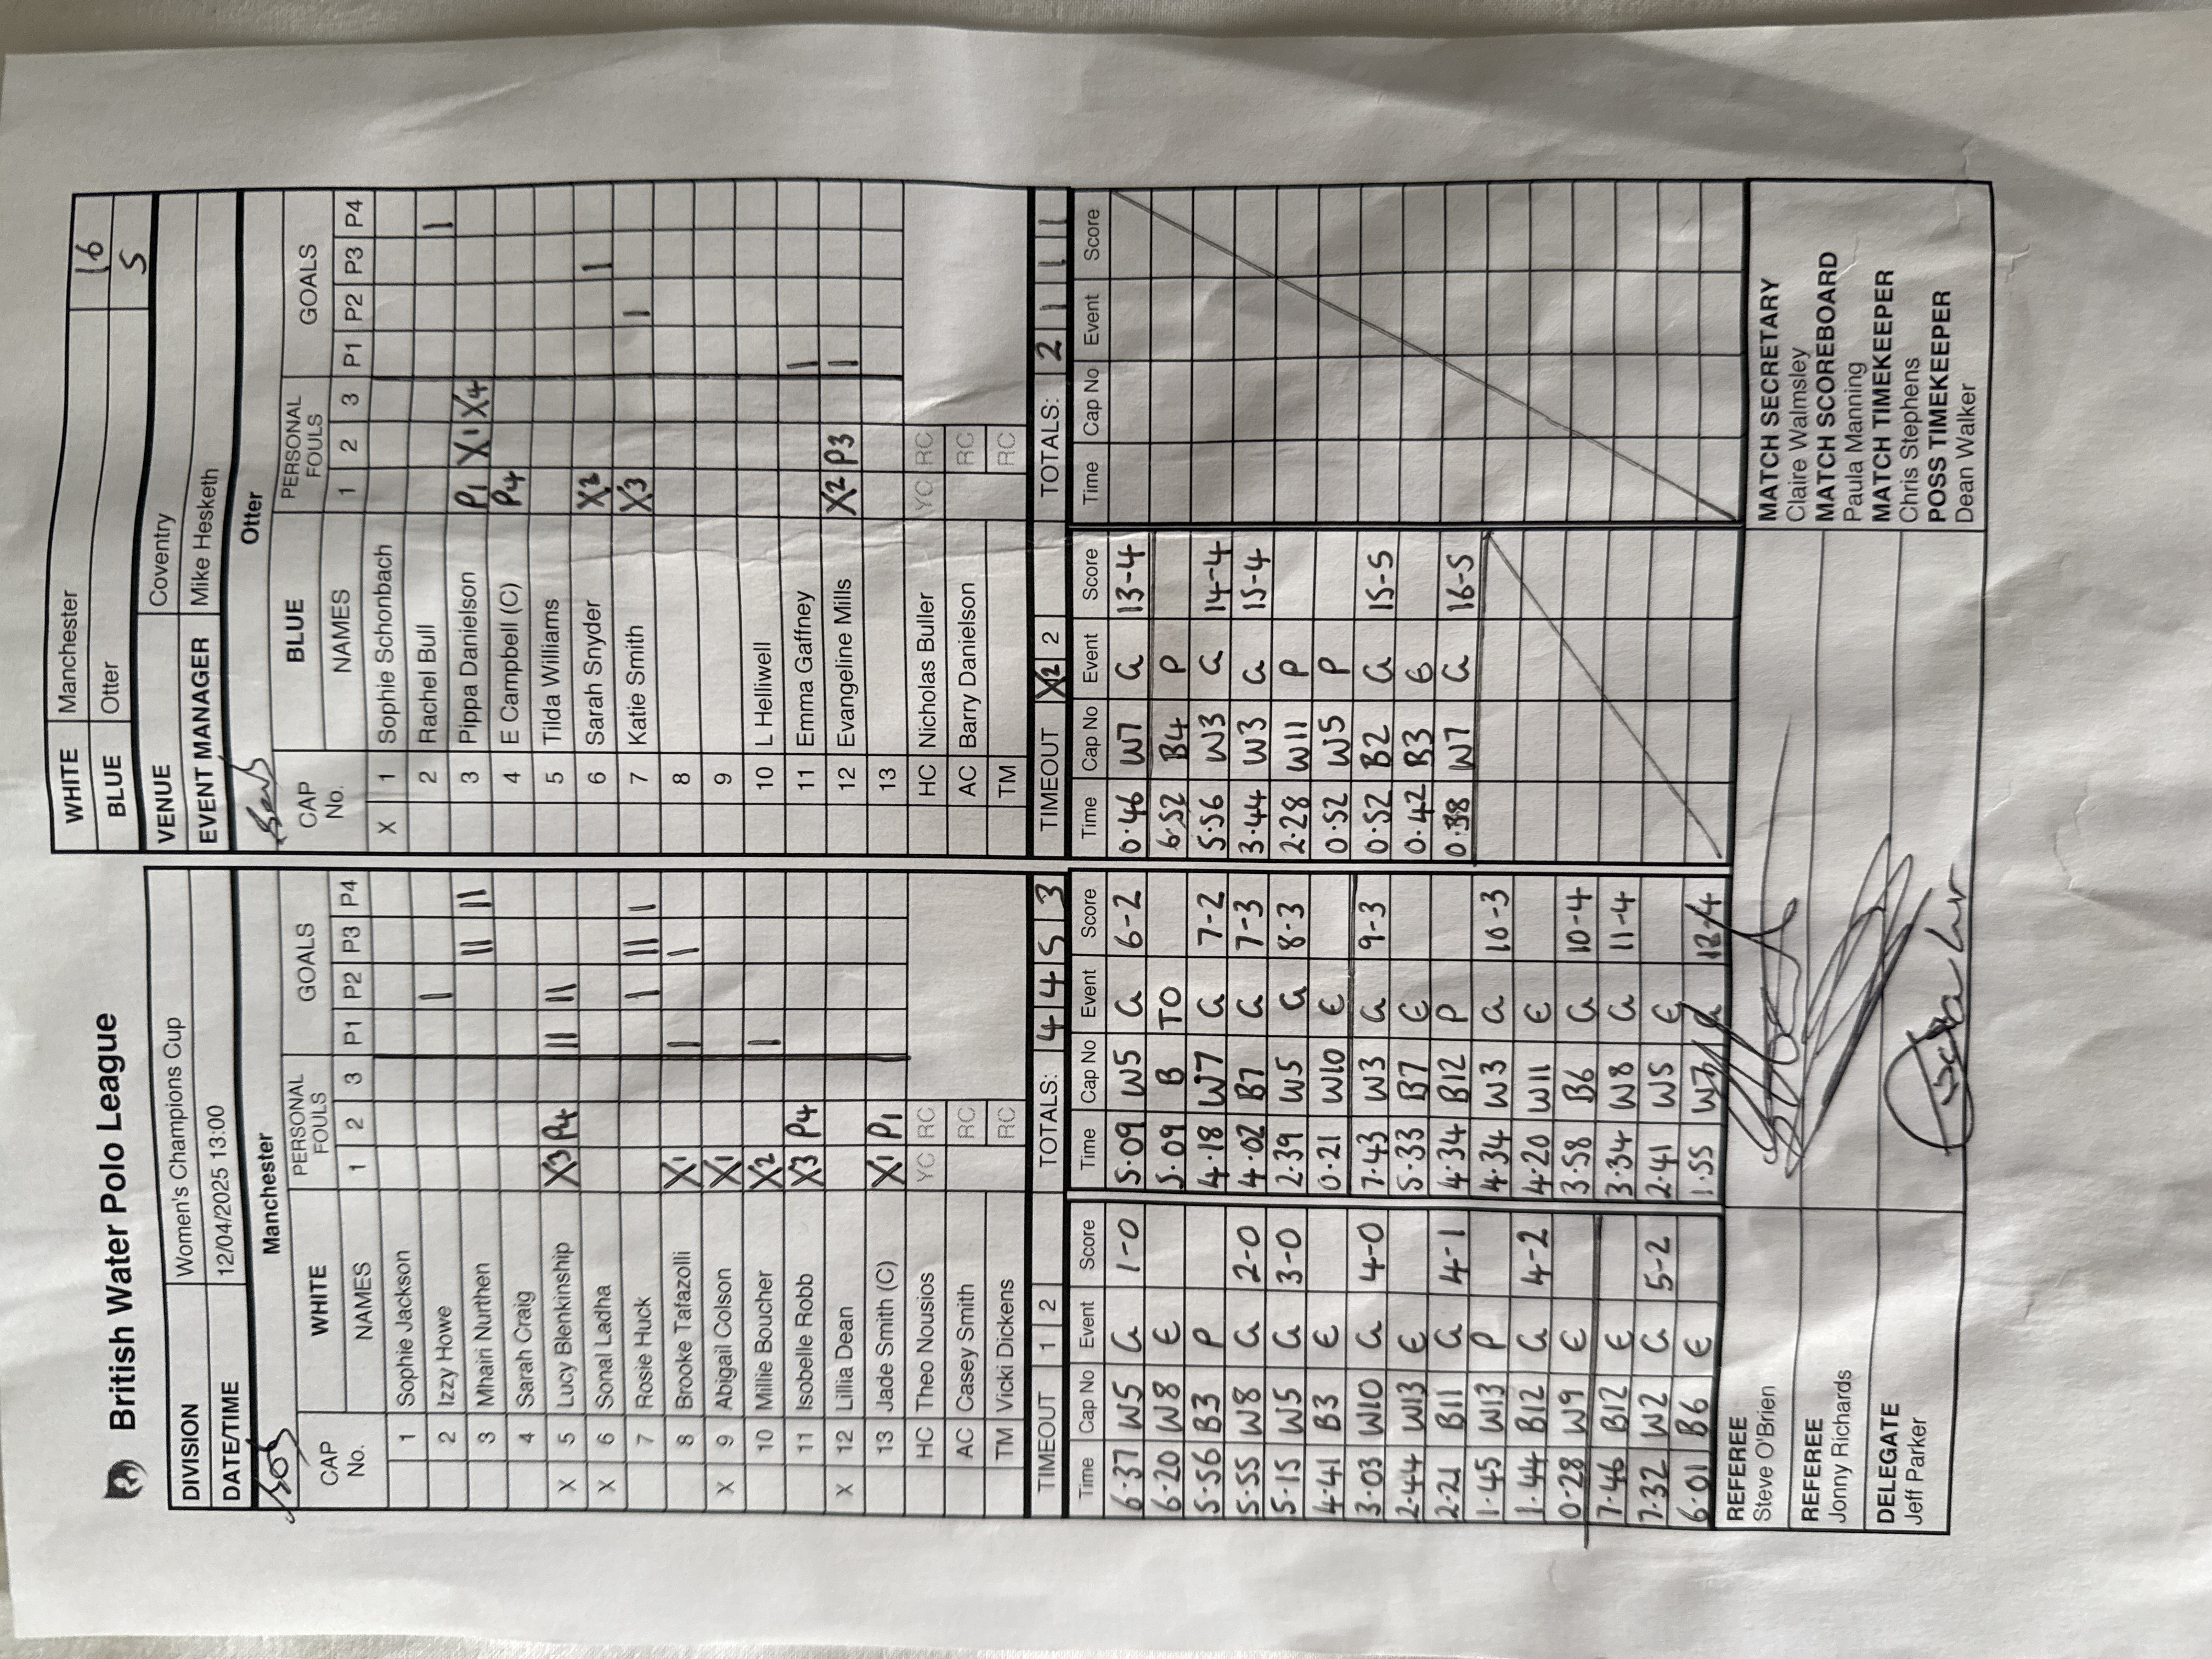 British Water Polo League
WHITE Manchester 16
BLUE Otter 5
DIVISION Women's Champions Cup
DATE/TIME 12/04/2025 13:00
VENUE Coventry
EVENT MANAGER Mike Hesketh
Manchester
CAP No. WHITE NAMES PERSONAL FOULS 1 2 3 GOALS P1 P2 P3 P4
1 Sophie Jackson
2 Izzy Howe |
3 Mhairi Nurthen || ||
4 Sarah Craig
X 5 Lucy Blenkinship X3 P4 || ||
X 6 Sonal Ladha
7 Rosie Huck | ||| |
8 Brooke Tafazolli X1 | |
X 9 Abigail Colson X1
10 Millie Boucher X2 |
11 Isobelle Robb X3 P4
X 12 Lillia Dean
13 Jade Smith (C) X1 P1
HC Theo Nousios YC RC
AC Casey Smith RC
TM Vicki Dickens RC
TIMEOUT 1 2 TOTALS: 4 4 5 3
Otter
CAP No. BLUE NAMES PERSONAL FOULS 1 2 3 GOALS P1 P2 P3 P4
X 1 Sophie Schonbach
2 Rachel Bull |
3 Pippa Danielson P1 X1 X4
4 E Campbell (C) P4
5 Tilda Williams
6 Sarah Snyder X2 |
7 Katie Smith X3 |
8
9
10 L Helliwell
11 Emma Gaffney |
12 Evangeline Mills X2 P3 |
13
HC Nicholas Buller YC RC
AC Barry Danielson RC
TM RC
TIMEOUT X2 2 TOTALS: 2 1 1 1
Time Cap No Event Score
6.37 W5 G 1-0
6.20 W8 E
5.56 B3 P
5.55 W8 G 2-0
5.15 W5 G 3-0
4.41 B3 E
3.03 W10 G 4-0
2.44 W13 E
2.21 B11 G 4-1
1.45 W13 P
1.44 B12 G 4-2
0.28 W9 E
7.46 B12 E
7.32 W2 G 5-2
6.01 B6 E
Time Cap No Event Score
5.09 W5 G 6-2
5.09 B TO
4.18 W7 G 7-2
4.02 B7 G 7-3
2.39 W5 G 8-3
0.21 W10 E
7.43 W3 G 9-3
5.33 B7 E
4.34 B12 P
4.34 W3 G 10-3
4.20 W11 E
3.58 B6 G 10-4
3.34 W8 G 11-4
2.41 W5 E
1.55 W7 G 12-4
Time Cap No Event Score
0.46 W7 G 13-4
6.52 B4 P
5.56 W3 G 14-4
3.44 W3 G 15-4
2.28 W11 P
0.52 W5 P
0.52 B2 G 15-5
0.42 B3 E
0.38 W7 G 16-5
Time Cap No Event Score
REFEREE
Steve O'Brien
REFEREE
Jonny Richards
DELEGATE
Jeff Parker
MATCH SECRETARY
Claire Walmsley
MATCH SCOREBOARD
Paula Manning
MATCH TIMEKEEPER
Chris Stephens
POSS TIMEKEEPER
Dean Walker